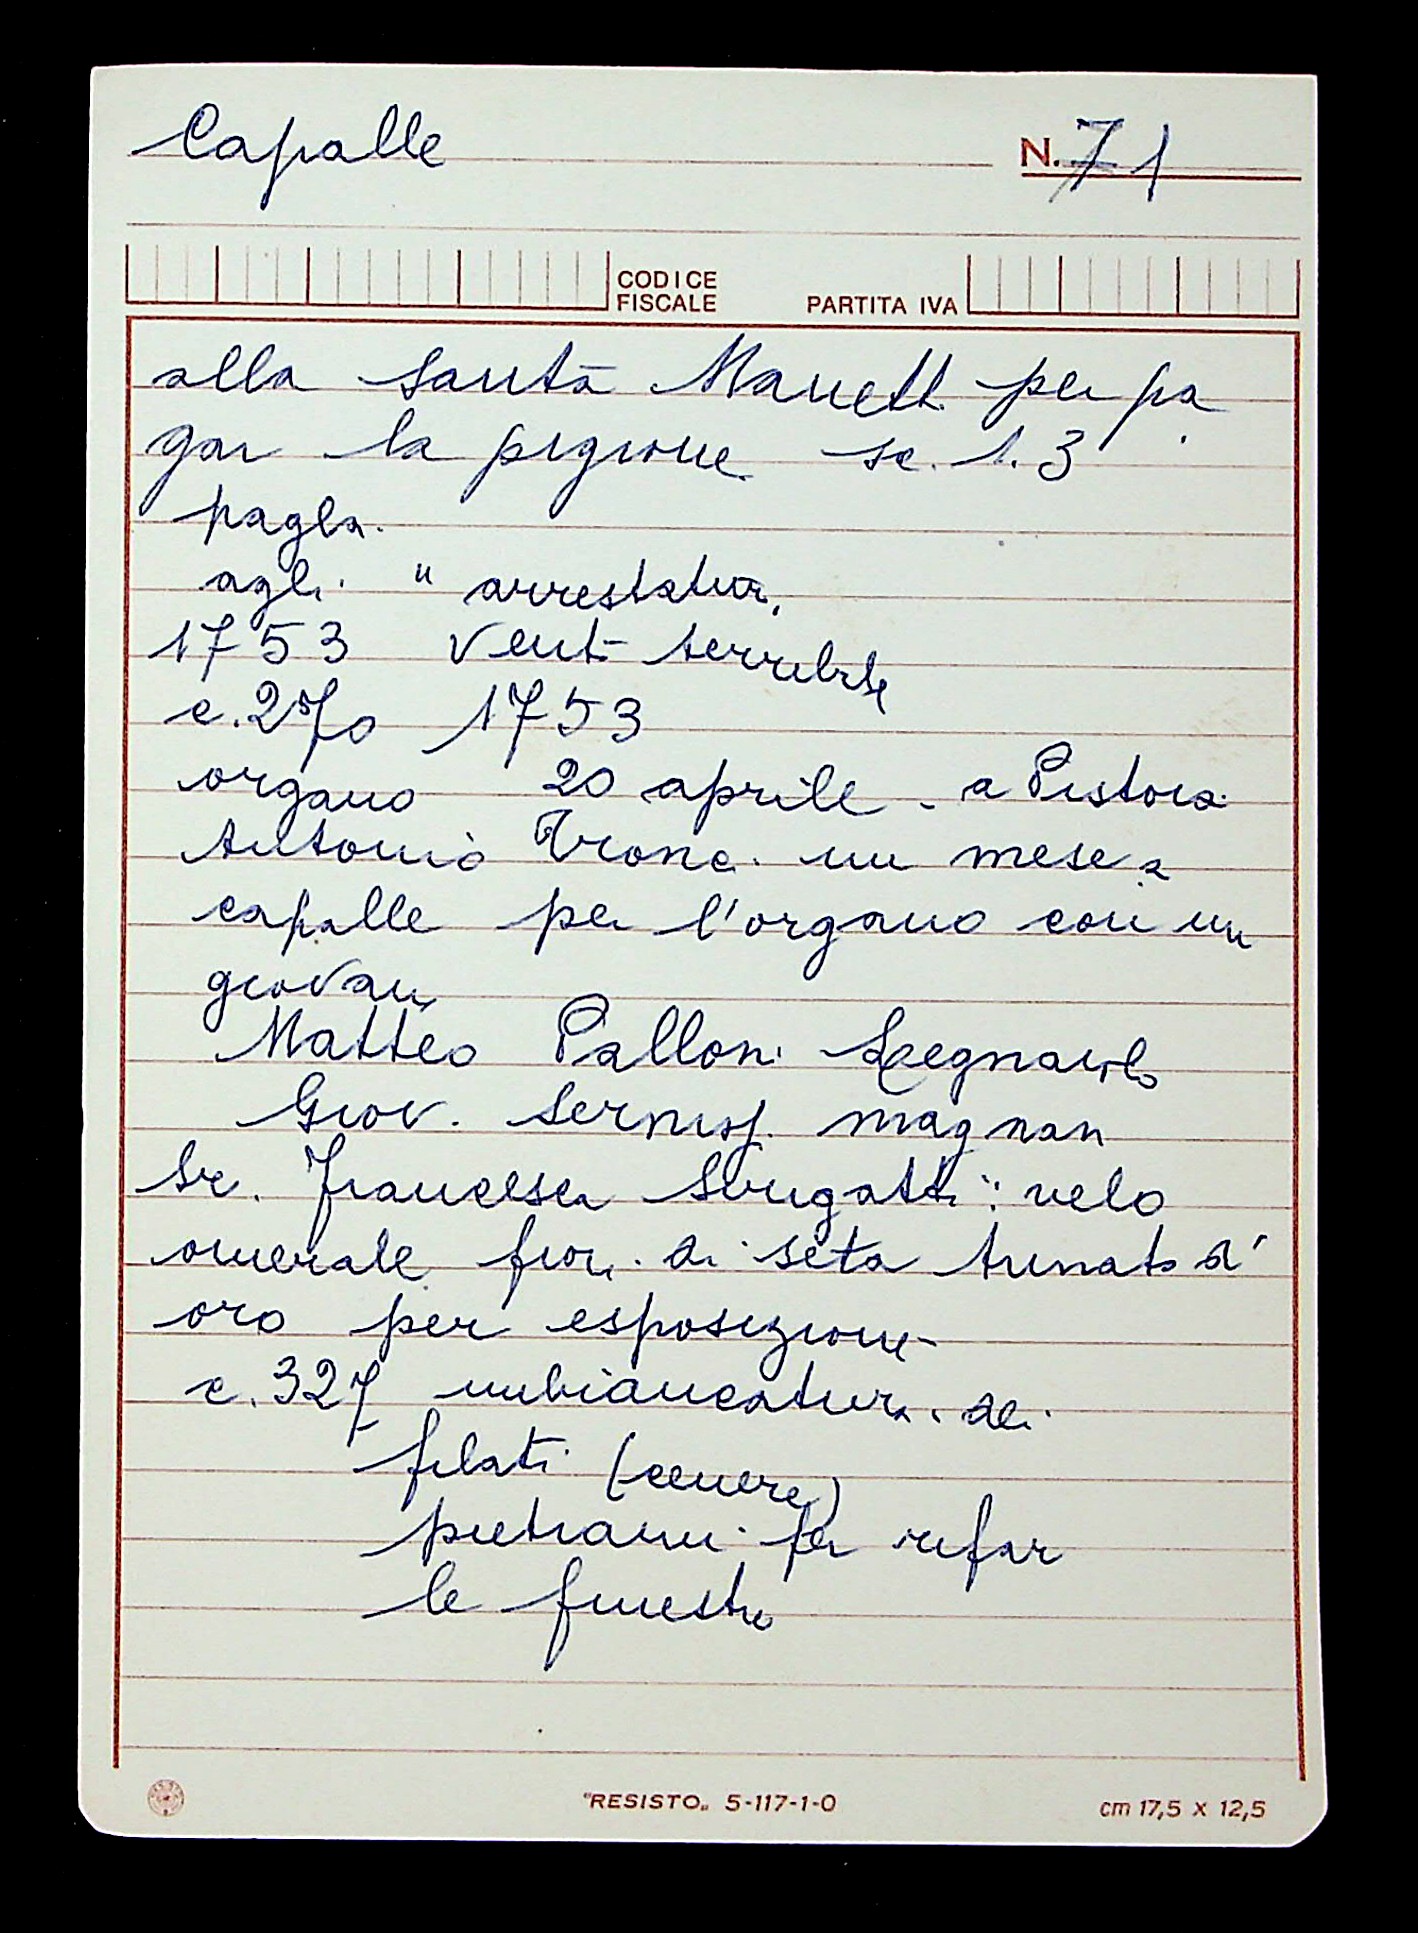 Capalle
N. 71
CODICE
FISCALE
PARTITA IVA
alla santa Manett. per pa
gar la pigione sc. 1.3
pagla.
agli " arrestatur.
1753 vent terribile
c. 270 1753
organo 20 aprile - a Pistoia
Antonio Tronc. un mese a
capalle per l'organo con un
giovan
Matteo Palloni Legnaiolo
Giov. magnan
Sr. Francesca : velo
omerale fior. di seta trinato d'
oro per esposizione
c. 327 imbiancatur. dei
filati (cenere)
pietrami per rifar
le finestre
"RESISTO" 5-117-1-0
cm 17,5 x 12,5